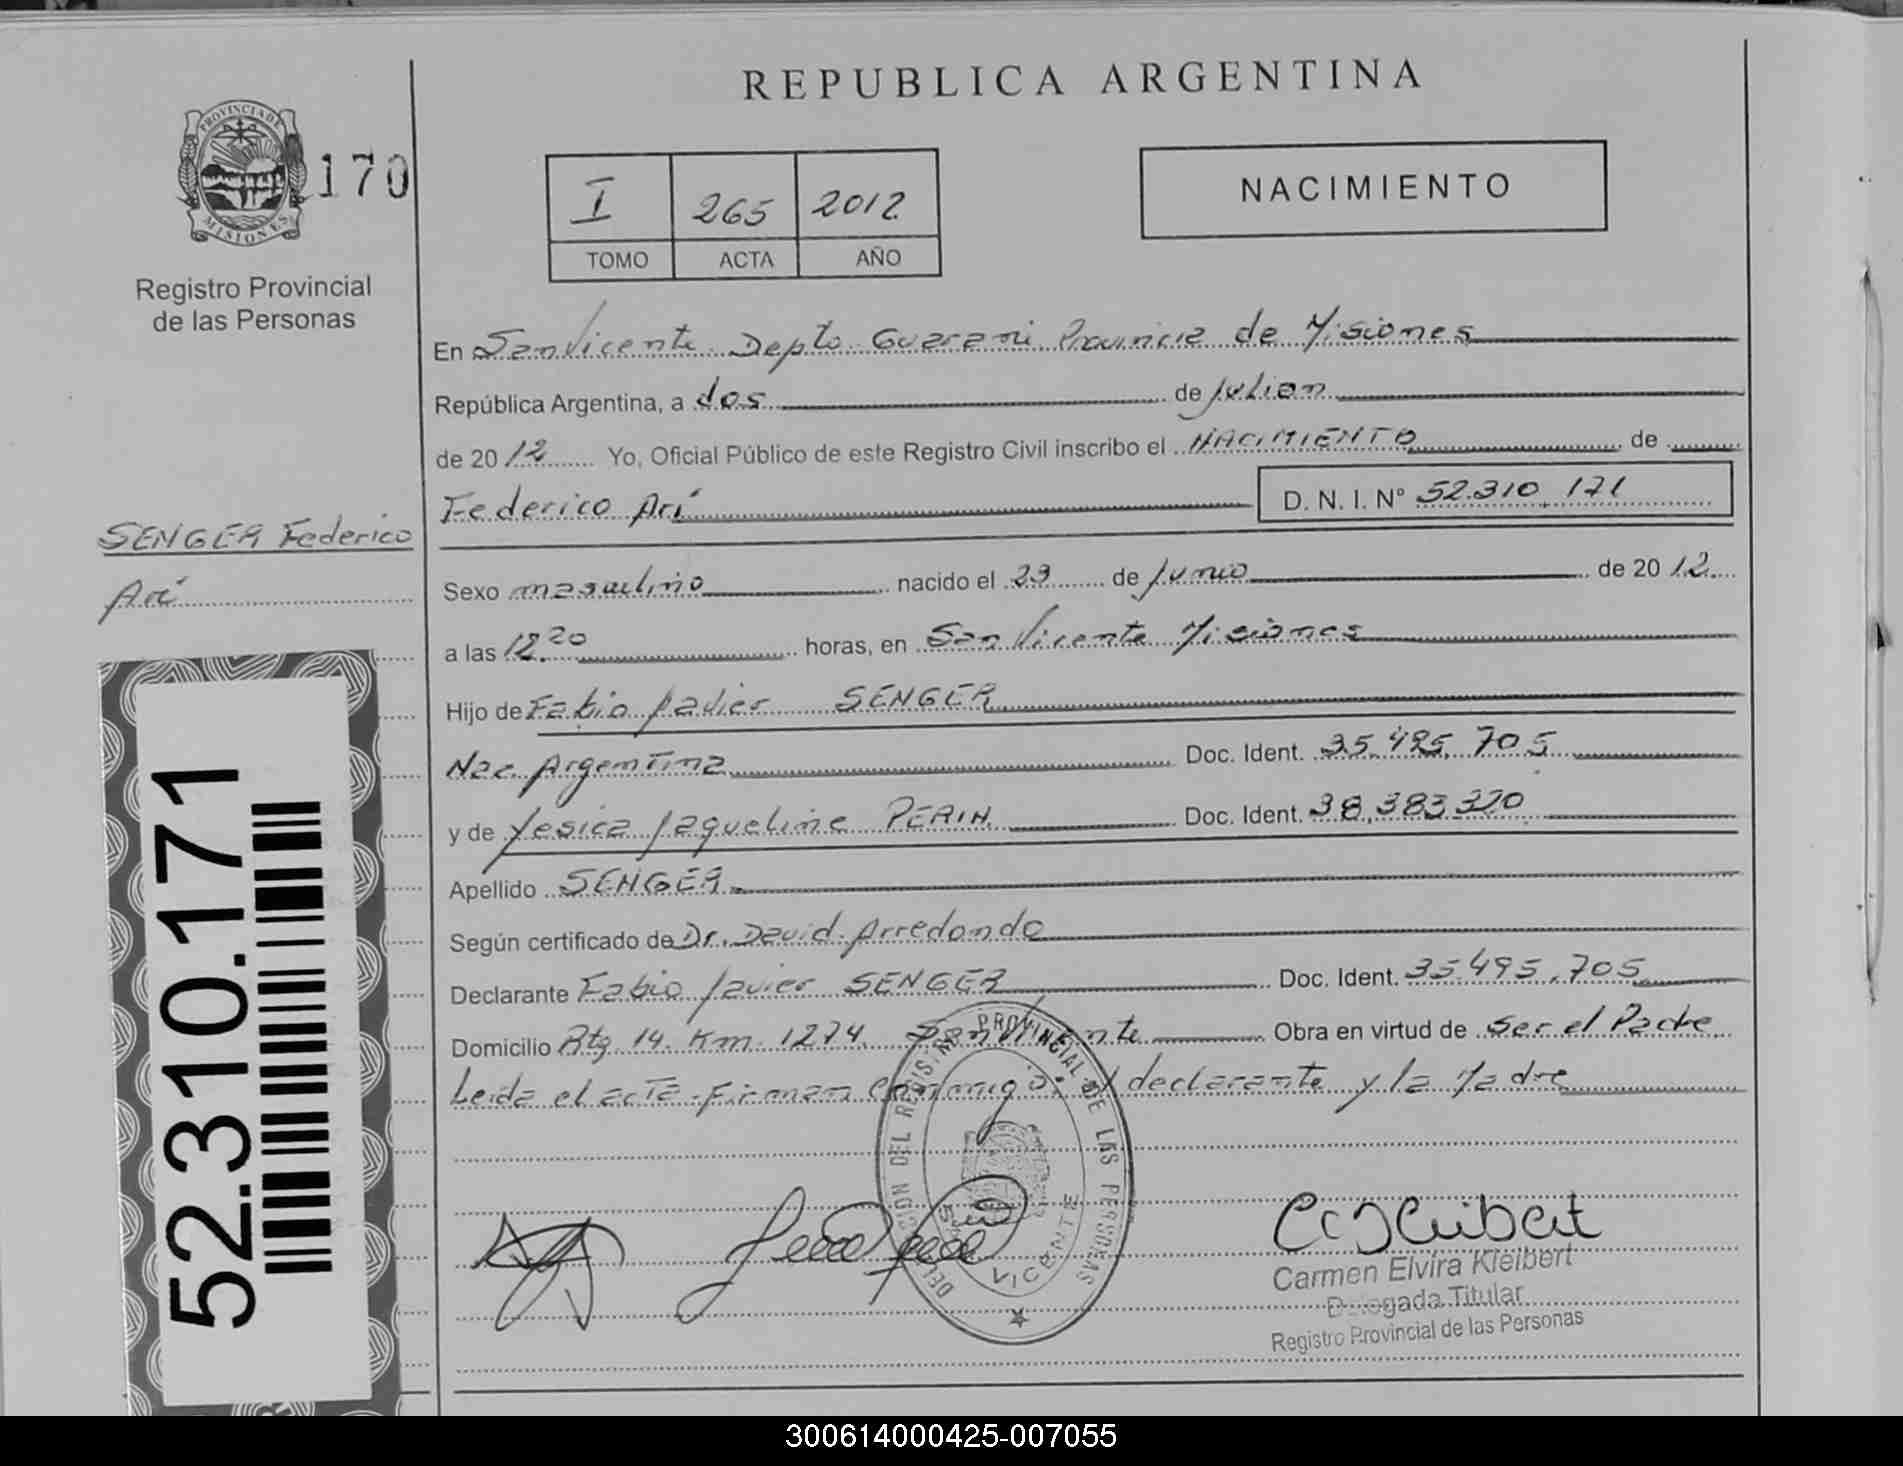 REPUBLICA ARGENTINA
PROVINCIA DE
MISIONES
170
Registro Provincial
de las Personas
I 265 2012
TOMO ACTA AÑO
NACIMIENTO
En San Vicente Depto Guarani Provincia de Misiones
República Argentina, a dos de Julion
de 2012 Yo, Oficial Público de este Registro Civil inscribo el NACIMIENTO de
Federico Arí D. N. I. Nº 52.310.171
SENGER Federico
Arí
Sexo masculino nacido el 29 de Junio de 2012
a las 12.20 horas, en San Vicente Misiones
Hijo de Fabio Javier SENGER
Nac. Argentina Doc. Ident. 35.495.705
y de Yesica Jaqueline PERIN Doc. Ident. 38.383.320
Apellido SENGER
Según certificado de Dr. David Arredondo
Declarante Fabio Javier SENGER Doc. Ident. 35.495.705
Domicilio Rta 14 Km 1274 San Vicente Obra en virtud de ser el Padre
Leida el acta firman conmigo, el declarante y la Madre
52.310.171
DELEGACION DEL REGISTRO PROVINCIAL DE LAS PERSONAS
SAN VICENTE
Carmen Elvira Kleibert
Delegada Titular
Registro Provincial de las Personas
300614000425-007055